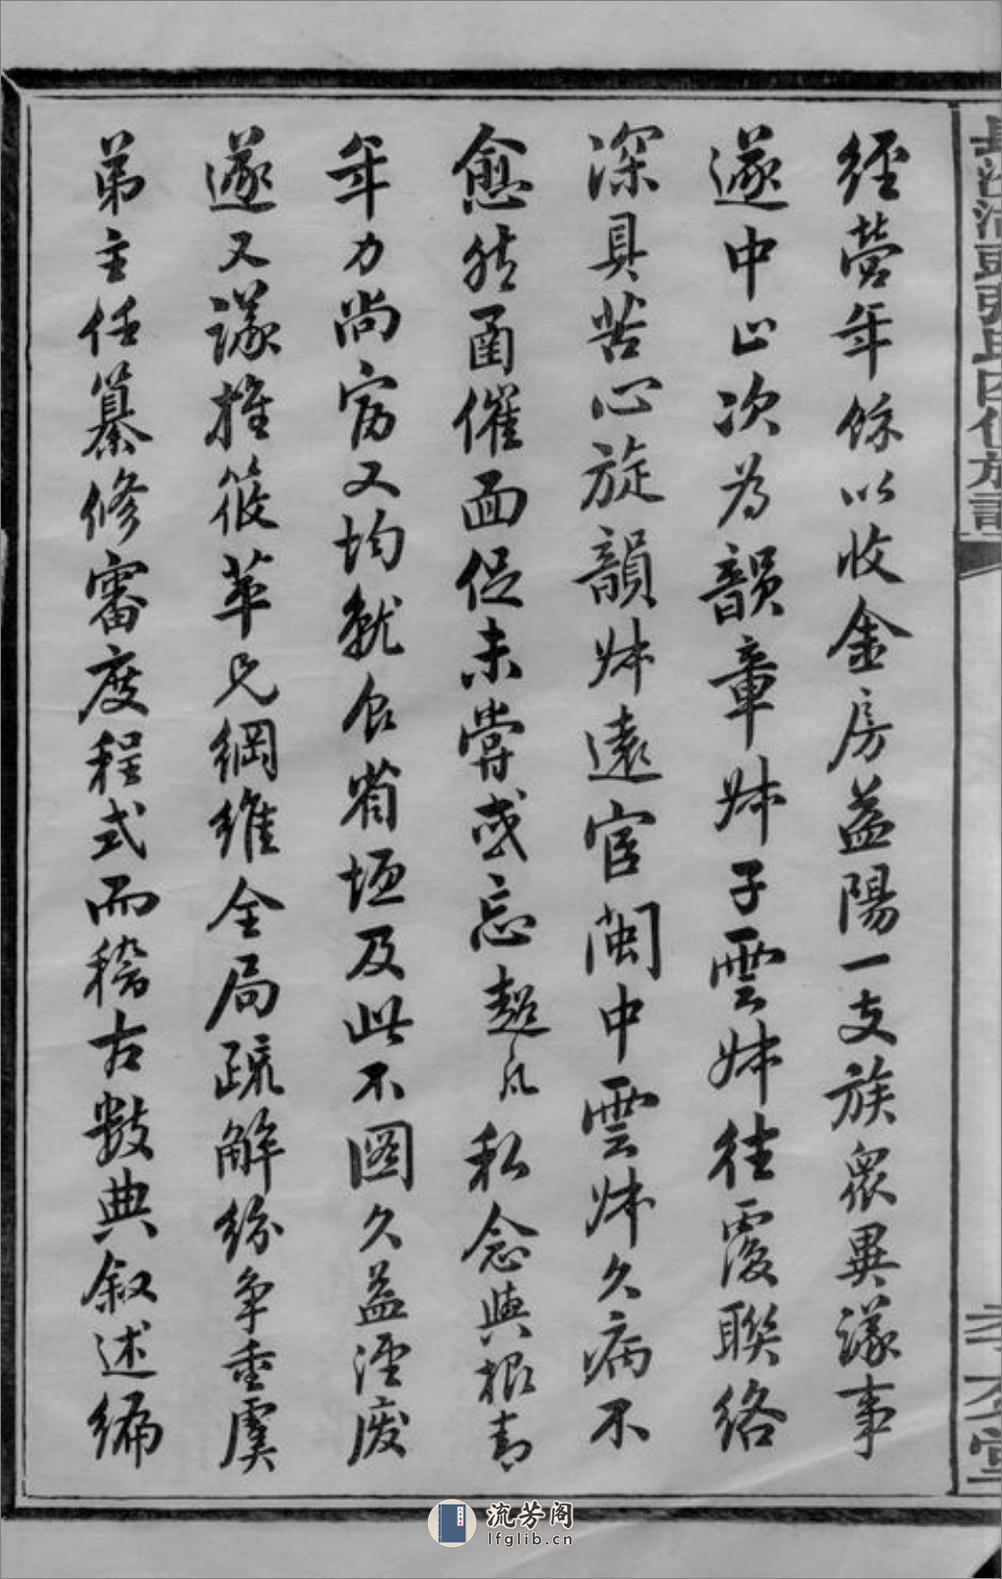 經營年餘以收金房益陽一支族衆異議事
遂中止次為韻章姊子雲姊往覆聯絡
深具苦心旋韻姊遠官閩中雲姊久病不
愈然函催面促未嘗或忘超凡私念與根青
年力尚富又均就食省垣及此不圖久益湮廢
遂又議推筱苹兄綱維全局疏解紛爭重虞
弟主任纂修審度程式而稽古數典敘述編
流芳阁
lfglib.cn